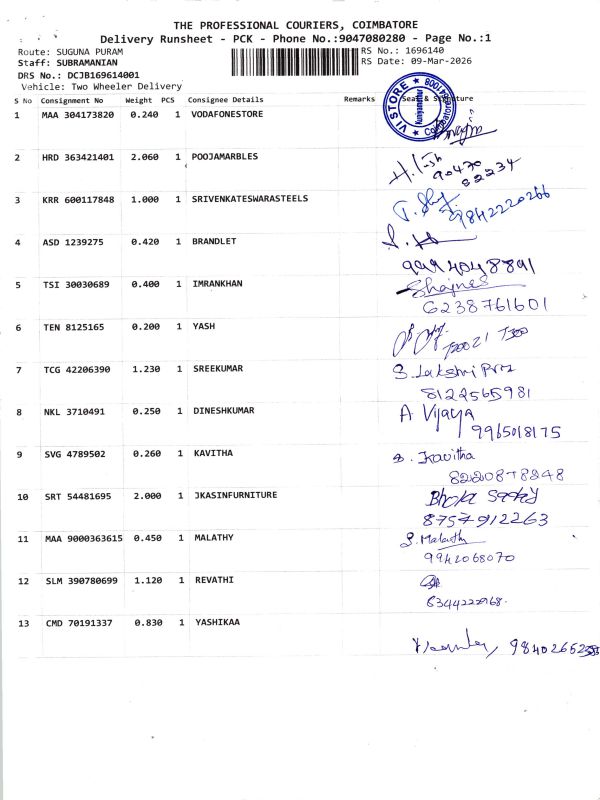 THE PROFESSIONAL COURIERS, COIMBATORE
Delivery Runsheet - PCK - Phone No.:9047080280 - Page No.:1
Route: SUGUNA PURAM RS No.: 1696140
Staff: SUBRAMANIAN RS Date: 09-Mar-2026
DRS No.: DCJB169614001
Vehicle: Two Wheeler Delivery
S No Consignment No Weight PCS Consignee Details Remarks Seal & Signature
VI STORE Coimbatore
1 MAA 304173820 0.240 1 VODAFONESTORE
2 HRD 363421401 2.060 1 POOJAMARBLES
90470
82234
3 KRR 600117848 1.000 1 SRIVENKATESWARASTEELS
9842220266
4 ASD 1239275 0.420 1 BRANDLET
9994048891
5 TSI 30030689 0.400 1 IMRANKHAN
6238761601
6 TEN 8125165 0.200 1 YASH
7 TCG 42206390 1.230 1 SREEKUMAR S. Lakshmi
8122565981
8 NKL 3710491 0.250 1 DINESHKUMAR A Vijaya
9965018175
9 SVG 4789502 0.260 1 KAVITHA S. Kavitha
10 SRT 54481695 2.000 1 JKASINFURNITURE
8757912263
11 MAA 9000363615 0.450 1 MALATHY S. Malathy
9942068070
12 SLM 390780699 1.120 1 REVATHI
13 CMD 70191337 0.830 1 YASHIKAA